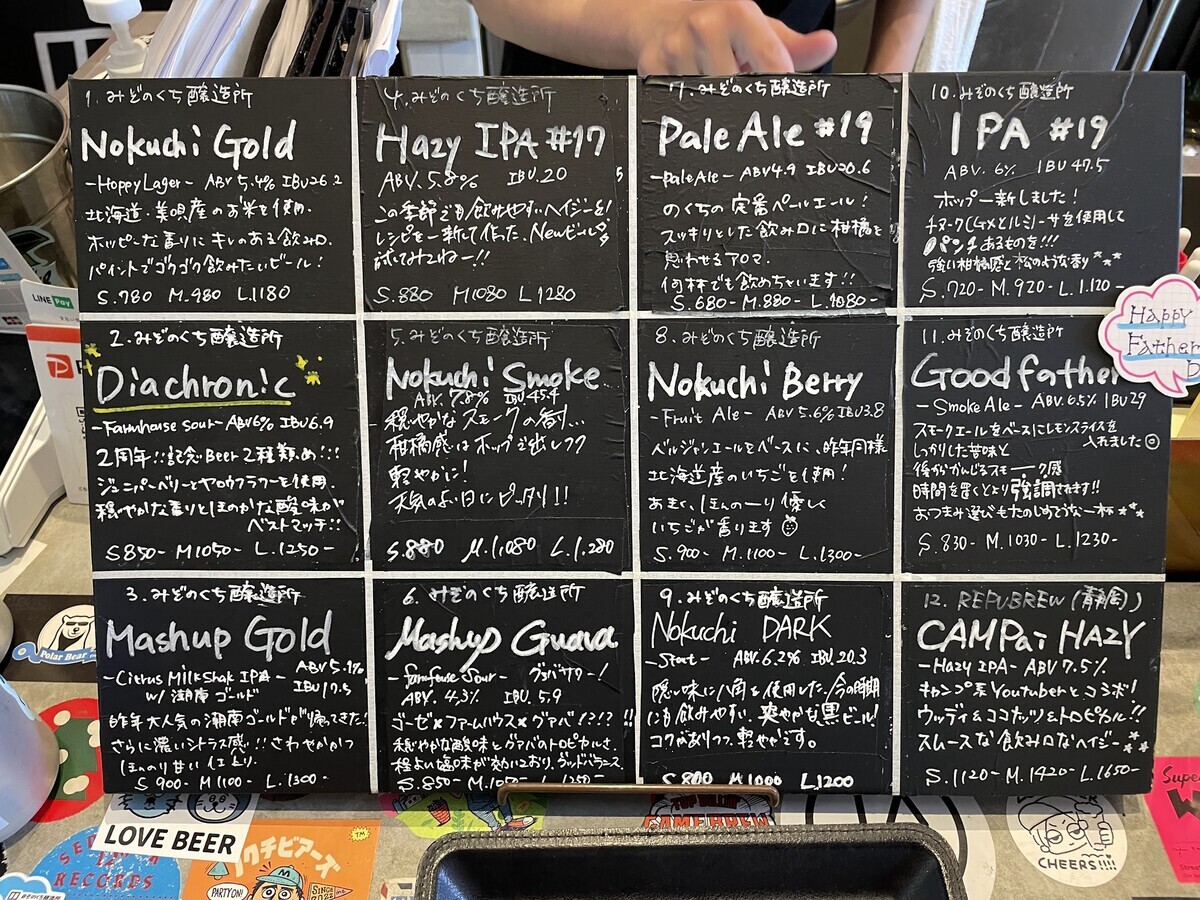 1. みぞのくち醸造所
Nokuchi Gold
-Hoppy Lager- ABV 5.4% IBU 26.2
北海道・美唄産のお米を使用.
ホッピーな香りにキレのある飲み口.
パイントでゴクゴク飲みたいビール!
S.780 M.980 L.1180
2. みぞのくち醸造所
Diachronic
-Farmhouse sour- ABV 6% IBU 6.9
2周年!!記念Beer 2種類め!!
ジュニパーベリーとヤロウフラワーを使用.
穏やかな香りとほのかな酸味が
ベストマッチ!!
S.850- M.1050- L.1250-
3. みぞのくち醸造所
Mashup Gold
-Citrus Milkshak IPA- ABV 5.9%
w/ 湘南ゴールド IBU 17.5
昨年大人気の湘南ゴールドが帰ってきた!
さらに濃いシトラス感!! さわやかかつ
ほんのり甘い
S.900- M.1100- L.1300-
4. みぞのくち醸造所
Hazy IPA #17
ABV. 5.8% IBU. 20
この季節でも飲みやすいヘイジーを!
レシピを一新して作った、Newビール
試してみてねー!!
S.880 M1080 L1280
5. みぞのくち醸造所
Nokuchi Smoke
ABV. 7.8% IBU 45.4
穏やかなスモークの香り...
柑橘感はホップで出しつつ
軽やかに!
天気のよい日にピッタリ!!
S.880 M.1080 L.1280
6. みぞのくち醸造所
Mashup Guava
グァバサワー!
ABV. 4.3% IBU 5.9
ゴーゼ×ファームハウス×グァバ!?!?!!
穏やかな酸味とグァバのトロピカルさ.
程よい塩味が効いており、グッドバランス
S.850- M.1050-
7. みぞのくち醸造所
Pale Ale #19
-Pale Ale- ABV 4.9 IBU 20.6
のくちの定番ペールエール!
スッキリとした飲み口に柑橘を
思わせるアロマ.
何杯でも飲めちゃいます!!
S.680- M.880- L.1080-
8. みぞのくち醸造所
Nokuchi Berry
-Fruit Ale- ABV 5.6% IBU 3.8
ベルジャンエールをベースに、昨年同様
北海道産のいちごを使用!
あまく、ほんのーり優しく
いちごが香ります
S.900- M.1100- L.1300-
9. みぞのくち醸造所
Nokuchi DARK
-Stout- ABV. 6.2% IBU. 20.3
隠し味に八角を使用した、今の時期
にも飲みやすい、爽やかな黒ビール!
コクがありつつ、軽やかです。
S.800 M.1000 L.1200
10. みぞのくち醸造所
IPA #19
ABV. 6% IBU 47.5
ホップ一新しました!
チヌークCGXとルミーサを使用して
パンチあるものを!!!
強い柑橘感と松のような香り
S.720- M.920- L.1.120-
11. みぞのくち醸造所
Good father
-Smoke Ale- ABV. 6.5% IBU 29
スモークエールをベースにレモンスライスを
入れました
しっかりした苦味と
後からかんじるスモーク感
時間を置くとより強調されます!!
おつまみ選びもたのしめそうな一杯
S.830- M.1030- L.1230-
12. REPUBREW (静岡)
CAMPai HAZY
-Hazy IPA- ABV 7.5%
キャンプ系Youtuberとコラボ!
ウッディ&ココナッツ&トロピカル!!
スムースな飲み口なヘイジー
S.1120- M.1420- L.1650-
Happy
Father
D
LINE Pay
Polar Bear
LOVE BEER
RECORDS
クチビアーズ
PARTY ON!
SINCE
CHEERS!!!!
Supe